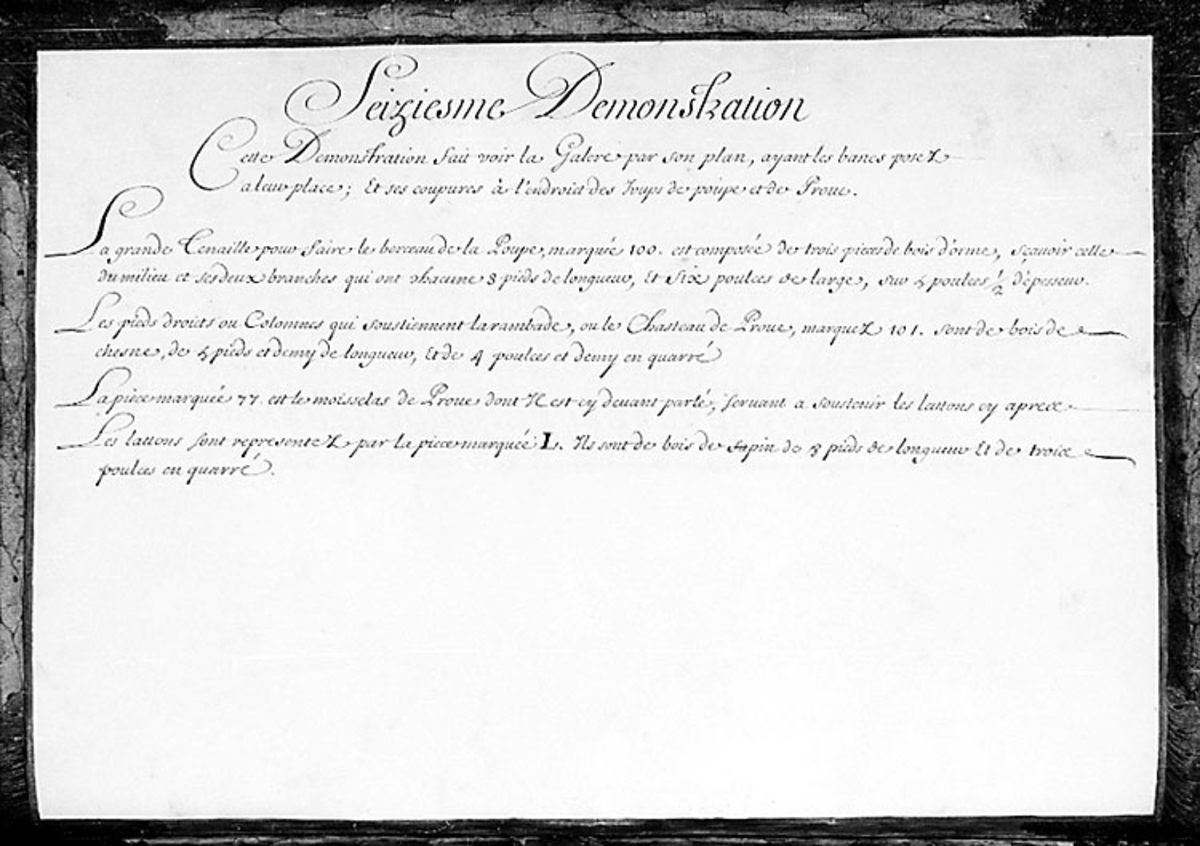 Seiziesme Demonstration
Cette Demonstration fait voir la Galere par son plan, ayant les bancs posez
a leur place; Et ses coupures à l'endroict des Jougs de poupe et de Proue.
La grande Tenaille pour faire le berceau de la Poupe, marquée 100. est composée de trois pieces de bois d'orme, sçavoir celle
du milieu et ses deux branches qui ont chacune 8 pieds de longueur, Et six poulces de large, sur 5 poulces ½ d'epesseur.
Les pieds droicts ou Colomnes qui soustiennent la rambade, ou le Chasteau de Proue, marquez 101. sont de bois de
chesne, de 5 pieds et demy de longueur, Et de 4 poulces et demy en quarré
La pièce marquée 77. est le moisselas de Proue dont Il est cy devant parlé, servant a soustenir les lattons cy aprece
Les lattons sont representez par la piece marquée L. Ils sont de bois de sapin de 8 pieds de longueur Et de troice
poulces en quarré.